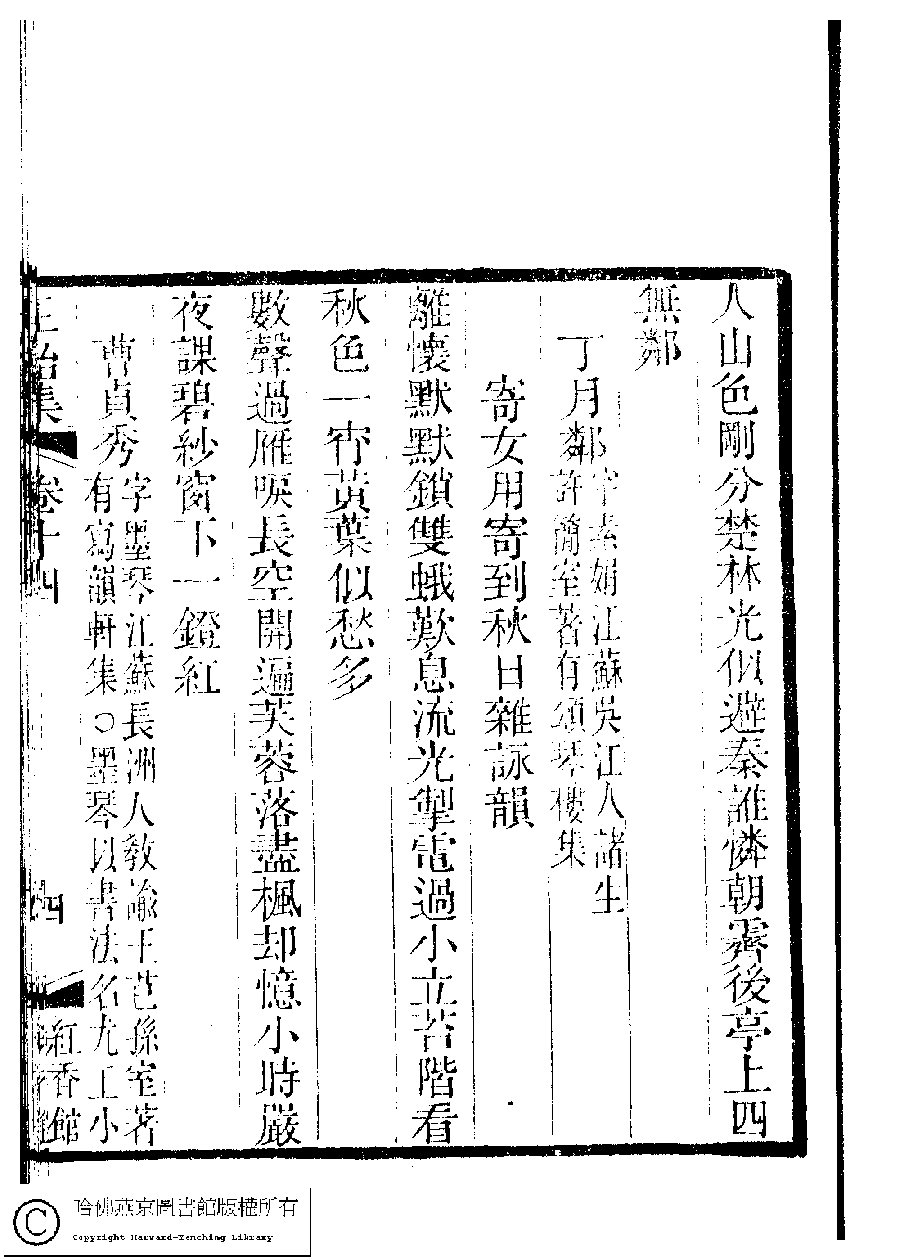 人山色剛分楚林光似避秦誰憐朝霽後亭上四
無鄰
丁月鄰字素娟江蘇吳江人諸生
許簡室著有頌琴樓集
寄女用寄到秋日雜詠韻
離懷默默鎖雙蛾歎息流光掣電過小立苔階看
秋色一窗黃葉似愁多
數聲過雁唳長空開遍芙蓉落盡楓却憶小時嚴
夜課碧紗窗下一鐙紅
曹貞秀字墨琴江蘇長洲人教諭王芑孫室著
有寫韻軒集○墨琴以書法名尤工小
正始集 卷十四 四 紅香館
哈佛燕京圖書館版權所有
Copyright Harvard-Yenching Library